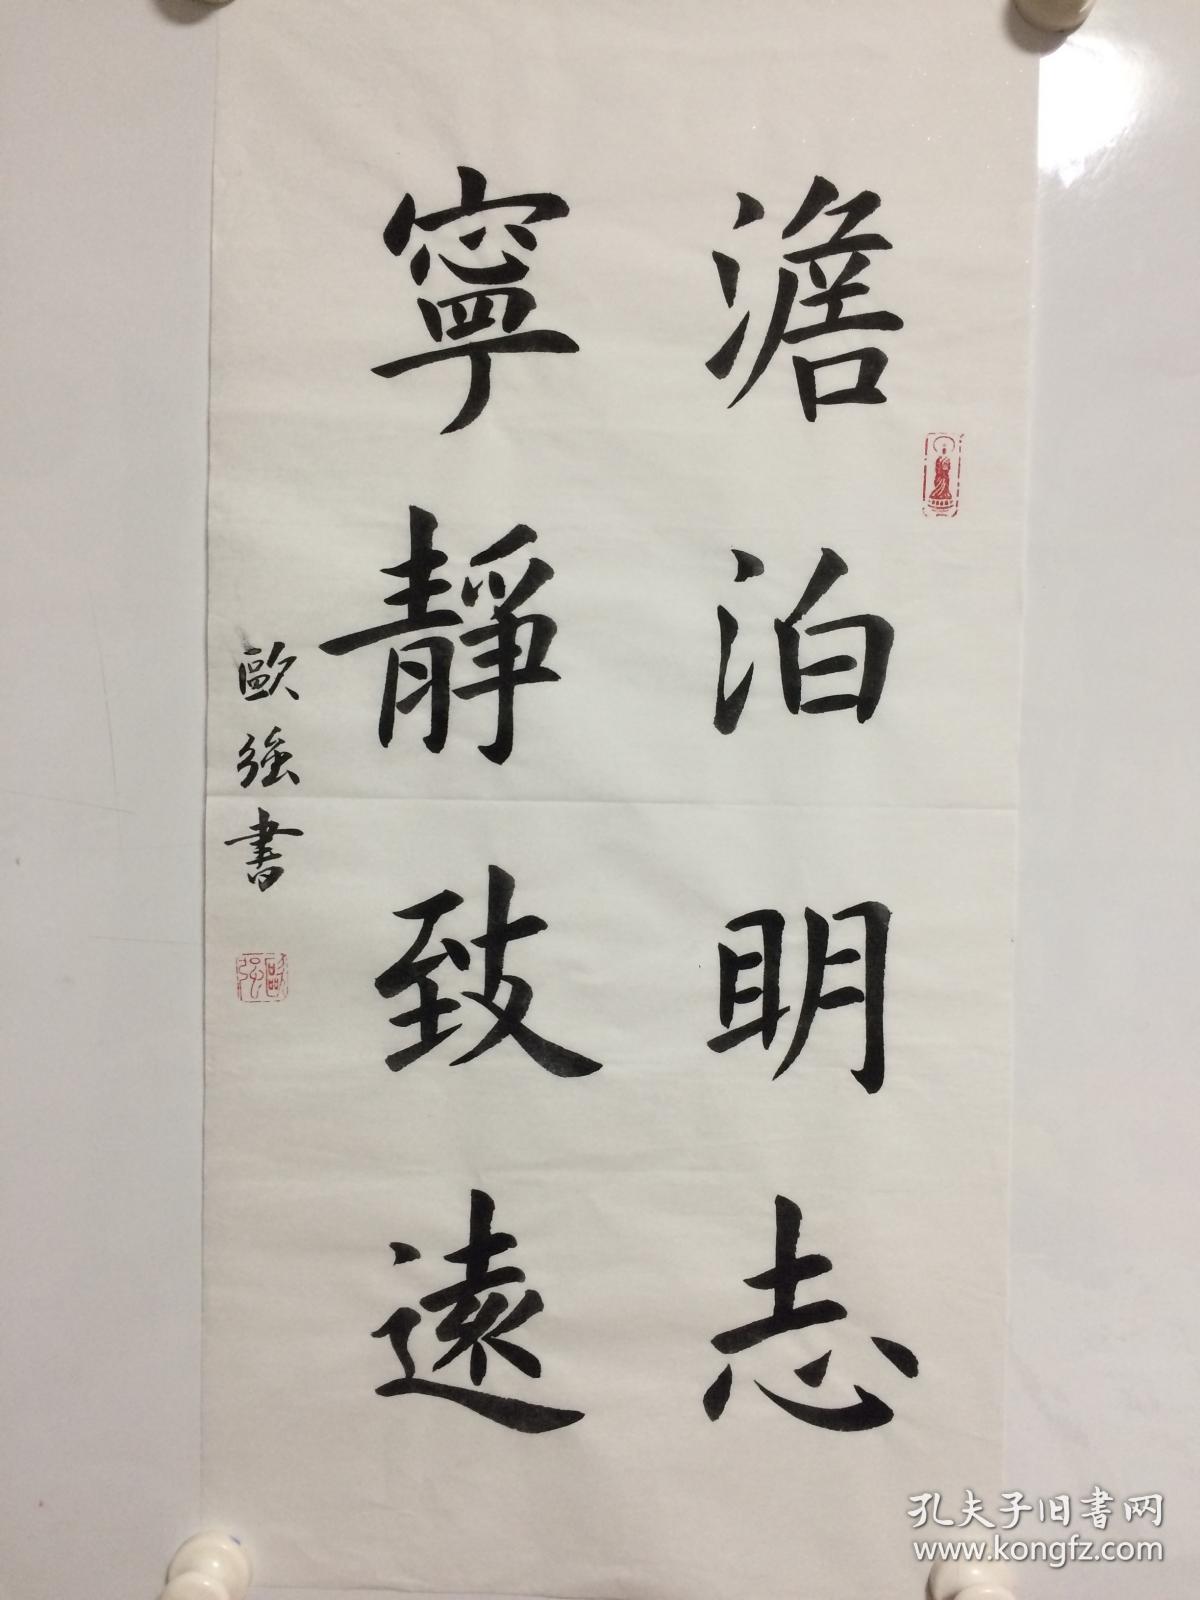 澹泊明志
寧靜致遠
歐強書
孔夫子旧书网
www.kongfz.com